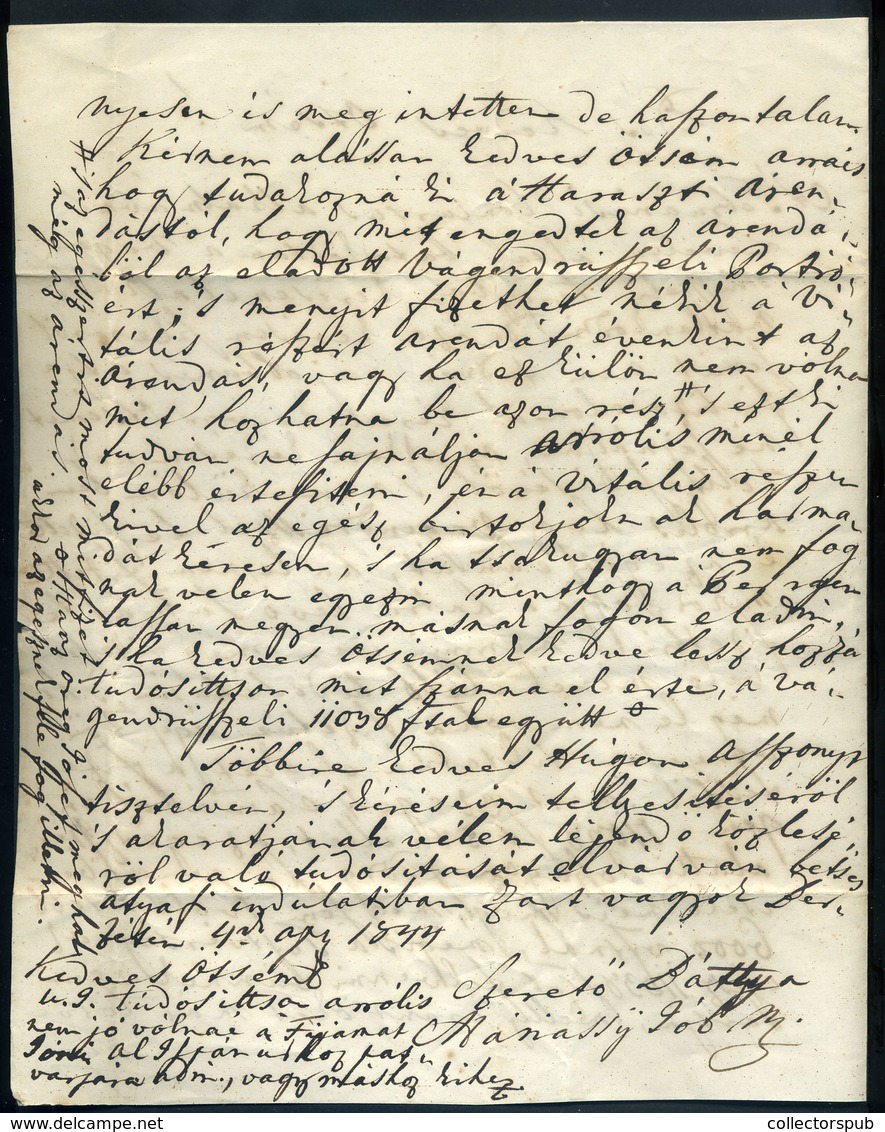 nyesen is meg intettem de haszontalan
Kérnem alássan Kedves Ötsém arra is
hogy tudakozná ki á Haraszti Áren„
dástól, hogy mit engedtek az árendá„
ból az eladott Vágendrüszeli Portió„
ért, 's menyit fizethet nékik á Vi„
tális részért arendát évenkint az
árendás, vagy ha ez külön nem vólna
mit hozhatna be azon rész #, 's ezt ki
tudván ne sajnálja arrólis minél
elébb értesiteni, én á Vitális részen
kivel az egész birtokjok ak harma„
dát kéresen, 's ha tsakugyan nem fog
nak velem egyezni minthogy á Per igen
lassan megyen másnak fogom eladni,
's ha kedves Ötsémnek kedve lessz hozzá
tudósittson mit szánna el érte, á Vá„
gendrüszeli 11038 ftal együtt
Többire kedves Húgom Asszonyt
tisztelvén, 's kéréseim tellyesitéséröl
's akaratjának vélem léjendö közlesé„
röl való tudósitását elvárván betses
atyafi indúlatiban zárt vagyok Ber„
tétén 4k apr 1844
Kedves Ötsémk
Szeretö Báttya
Máriássÿ Jób
U.I. Tudósittson arrólis
nem jó vólnaé á Fijamat
al Ispán urhoz pat„
varjára adni, vagy máshoz kihez
# 's az egesz ertos most mit fizet
még az árendás.
ha az öreg Josef meghal
akkor az egesz fog illetni.
collectorspub